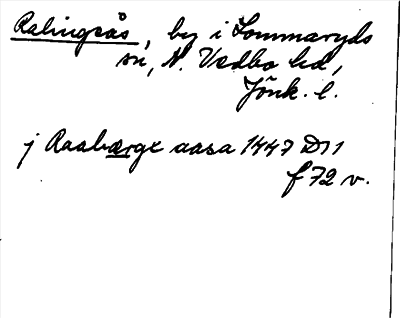 Ralingsås, by i Lommaryds
sn, N. Vedbo hd,
Jönk. l.
j Raabærgx aasa 1447 D11
f 72 v.